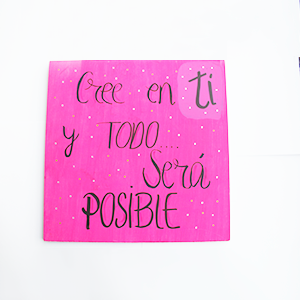 Cree en ti
y TODO....
Será
POSIBLE